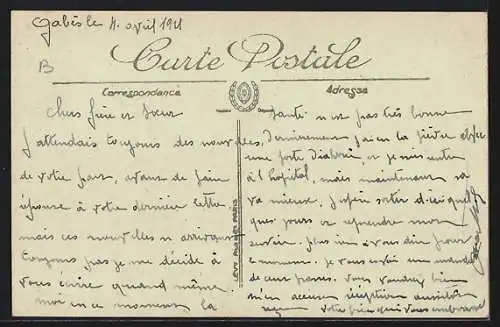 Gabès le 4 avril 1921
B
Carte Postale
Correspondance
Adresse
Chers frère et Sœur
J'attendais toujours des nouvelles,
de votre part, avant de faire
réponse à votre dernière lettre
mais ces nouvelles n'arrivant
toujours pas je me décide à
vous écrire quand même
moi en ce moment la
santé n'est pas très bonne
Dernièrement j'ai eu la fièvre avec
une forte diahrée, et je suis entré
à l'hôpital, mais maintenant sa
va mieux. J'espère sortir d'ici quel
ques jours et reprendre mon
service. plus rien à vous dire pour
le moment. Je vous envoie un mandat
de cent francs. Vous voudrez bien
m'en accuser réception aussitôt
votre frère qui vous embrasse
LEVY FILS & Cie PARIS